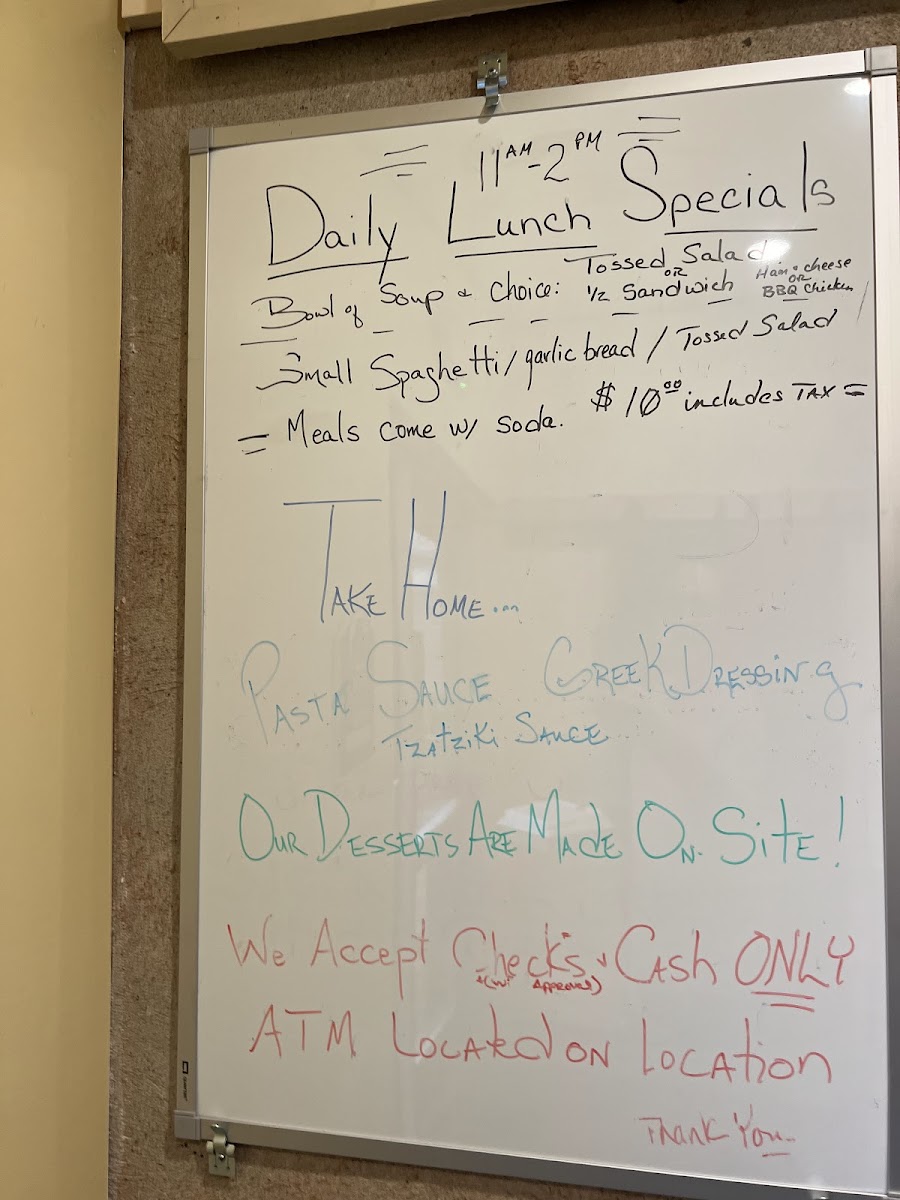 11 AM - 2 PM
Daily Lunch Specials
Tossed Salad
OR
Bowl of Soup & Choice: 1/2 Sandwich Ham & cheese OR BBQ Chicken
Small Spaghetti / garlic bread / Tossed Salad
= Meals come w/ soda. $10.00 includes TAX =
TAKE HOME...
PASTA SAUCE GREEK DRESSINg
TZATZiKi SAUCE
OUR DESSERTS ARE MAdE ON. SiTE!
We Accept Checks & CAsh ONLY
(w/ APPROVAL)
ATM LocAted ON LocATion
THANK You